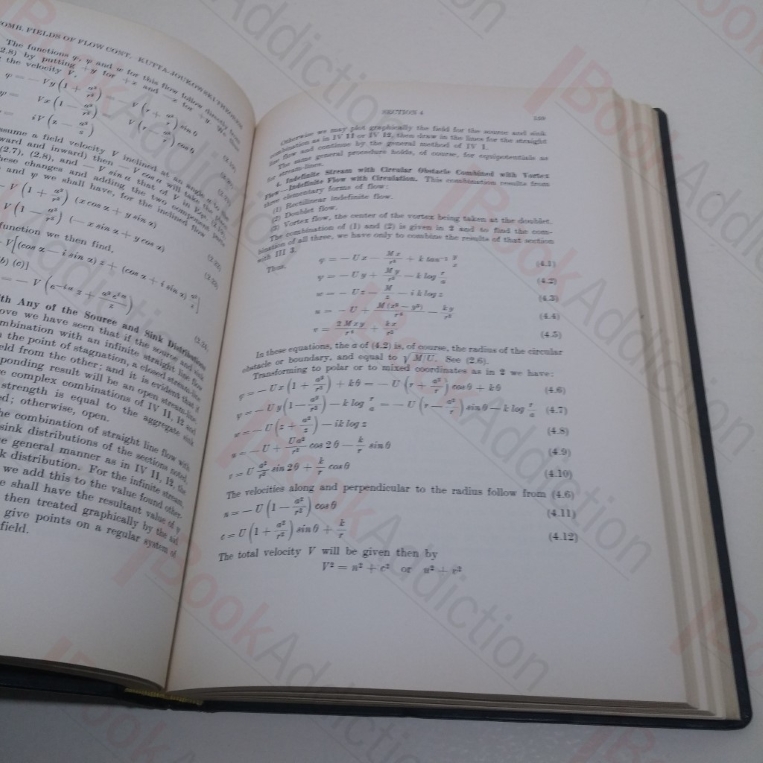 FIELDS OF FLOW CONT. KUTTA-JOUKOWSKI THEOREM
The functions φ, ψ and w for this flow follow directly from
(2.8) by putting +y for +x and −x for +y. We
the velocity V.
φ = − Vy (1 + a²/r²) = − V (r + a²/r) sin θ
Vx (1 − a²/r²) V (r − a²/r)
iV (z − a²/z)
assume a field velocity V inclined at an angle α
ward and inward) then − V cos α will take the
(2.7), (2.8), and − V sin α that of V in
these changes and adding the two component
and ψ we shall have, for the inclined flow
− V (1 + a²/r²) (x cos α + y sin α)
V (1 − a²/r²) (− x sin α + y cos α)
function we then find,
− V [(cos α − i sin α) z + (cos α + i sin α) a²/z]
(b) (c)]
= − V (e^−iα z + a² e^iα/z)
With Any of the Source and Sink Distributions
ove we have seen that if the source and sink
mbination with an infinite straight line flow
the point of stagnation, a closed stream-line
eld from the other; and it is evident that if
ponding result will be an open stream-line
e complex combinations of IV 11, 12 and
strength is equal to the aggregate sink
d; otherwise, open.
he combination of straight line flow with
sink distributions of the sections noted,
e general manner as in IV 11, 12, the
k distribution. For the infinite stream,
we add this to the value found other
e shall have the resultant value of ψ
then treated graphically by the aid
give points on a regular system of
field.
SECTION 4
Otherwise we may plot graphically the field for the source and sink
combination as in IV 11 or IV 12, then draw in the lines for the straight
line flow and continue by the general method of IV 1.
The same general procedure holds, of course, for equipotentials as
for stream-lines.
4. Indefinite Stream with Circular Obstacle Combined with Vortex
Flow—Indefinite Flow with Circulation. This combination results from
three elementary forms of flow:
(1) Rectilinear indefinite flow.
(2) Doublet flow.
(3) Vortex flow, the center of the vortex being taken at the doublet.
The combination of (1) and (2) is given in 2 and to find the com-
bination of all three, we have only to combine the results of that section
with III 3.
Thus,
φ = − Ux − Mx/r² + k tan⁻¹ y/x (4.1)
ψ = − Uy + My/r² − k log r (4.2)
w = − Uz − M/z − ik log z (4.3)
u = − U + M(x² − y²)/r⁴ − ky/r² (4.4)
v = 2Mxy/r⁴ + kx/r² (4.5)
In these equations, the a of (4.2) is, of course, the radius of the circular
obstacle or boundary, and equal to √M/U. See (2.6).
Transforming to polar or to mixed coordinates as in 2 we have:
φ = − Ux (1 + a²/r²) + kθ = − U (r + a²/r) cos θ + kθ (4.6)
ψ = − Uy (1 − a²/r²) − k log r/a = − U (r − a²/r) sin θ − k log r/a (4.7)
w = − U (z + a²/z) − ik log z (4.8)
u = − U + Ua²/r² cos 2θ − k/r sin θ (4.9)
v = U a²/r² sin 2θ + k/r cos θ (4.10)
The velocities along and perpendicular to the radius follow from (4.6)
u = − U (1 − a²/r²) cos θ (4.11)
c = U (1 + a²/r²) sin θ + k/r (4.12)
The total velocity V will be given then by
V² = u² + c² or u² + v²
BookAddiction